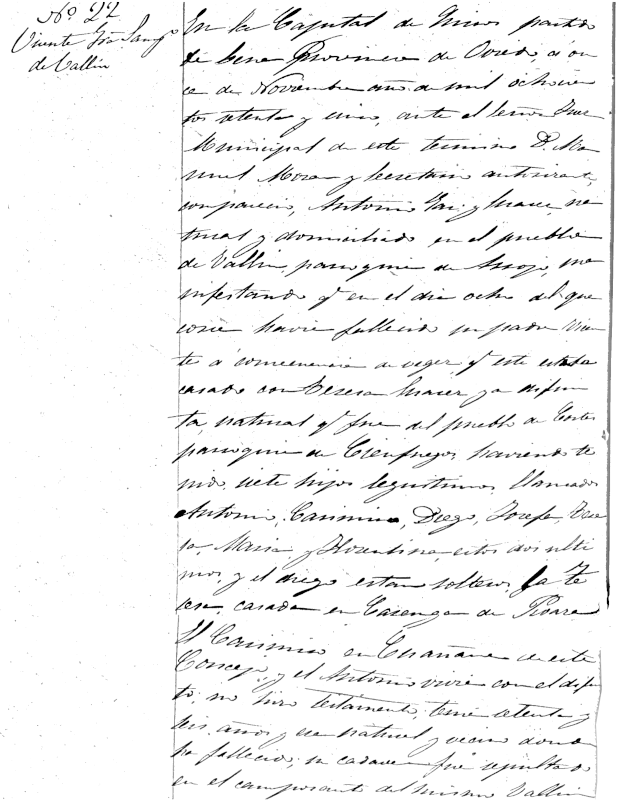 Nº 22
Vicente
de Vallin
En la Capital de partido
de Lena Provincia de Oviedo, a on
ce de Noviembre año de mil ochocien
tos setenta y uno, ante el Señor Juez
Municipal de este termino D. Ma
nuel y Secretario
comparecio, Antonio y na
tural y domiciliado en el pueblo
de Vallin, parroquia de ma
nifestando q en el dia ocho del que
corre havia fallecido su padre Vicen
te a consecuencia de veger y este estaba
casado con Teresa ya difun
ta, natural q fue del pueblo de
parroquia de Cienfuegos haviendo te
nido siete hijos legitimos, llamados
Antonio, Casimiro, Diego, Josefa, Tere
sa, Maria y Florentina, estos dos ulti
mos, y el diego estan solteros, la Te
resa, casada en de
El Casimiro en de este
Concejo, y el Antonio vivia con el difun
to, no hizo testamento, tenia setenta y
seis años y era natural y vecino donde
ha fallecido; su cadaver fue sepultado
en el camposanto del mismo Vallin